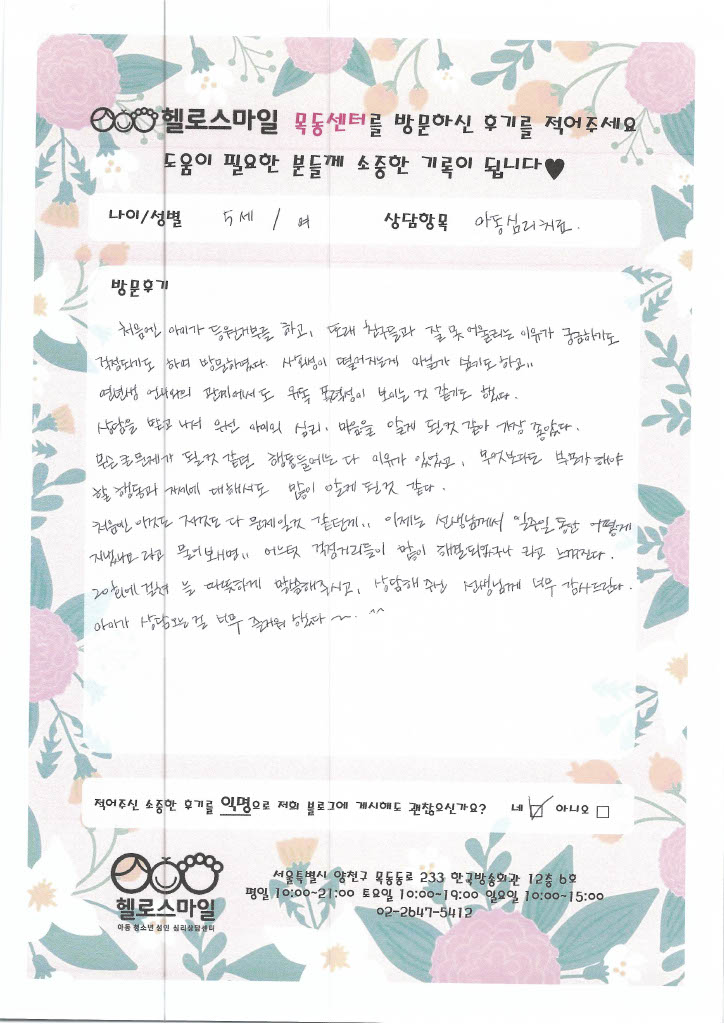 헬로스마일 목동센터를 방문하신 후기를 적어주세요
도움이 필요한 분들께 소중한 기록이 됩니다♥
나이/성별 5세 / 여 상담항목 아동심리치료.
방문후기
처음엔 아이가 등원거부를 하고, 또래 친구들과 잘 못 어울리는 이유가 궁금하기도
걱정되기도 하며 방문하였다. 사회성이 떨어지는게 아닐까 싶기도하고..
연년생 언니와의 관계에서도 유독 폭력성이 보이는 것 같기도 했다.
상담을 받고 나서 우선 아이의 심리, 마음을 알게 된것 같아 가장 좋았다.
모든 문제가 될것 같던 행동들에는 다 이유가 있었고, 무엇보다도 부모가 해야
할 행동과 자세에 대해서도 많이 알게 된것 같다.
처음엔 이것도 저것도 다 문제일것 같던게.. 이제는 선생님께서 일주일 동안 어떻게
지냈냐고 물어보시면.. 어느덧 걱정거리들이 많이 해결되었구나 라고 느껴진다.
20회에 걸쳐 늘 따뜻하게 말씀해주시고, 상담해 주신 선생님께 너무 감사드린다.
아이가 상담오는걸 너무 즐거워 했다 ~. ^^
적어주신 소중한 후기를 익명으로 저희 블로그에 게시해도 괜찮으신가요? 네 ☑ 아니오 □
헬로스마일
아동 청소년 성인 심리상담센터
서울특별시 양천구 목동동로 233 한국방송회관 12층 6호
평일 10:00~21:00 토요일 10:00~19:00 일요일 10:00~15:00
02-2647-5412